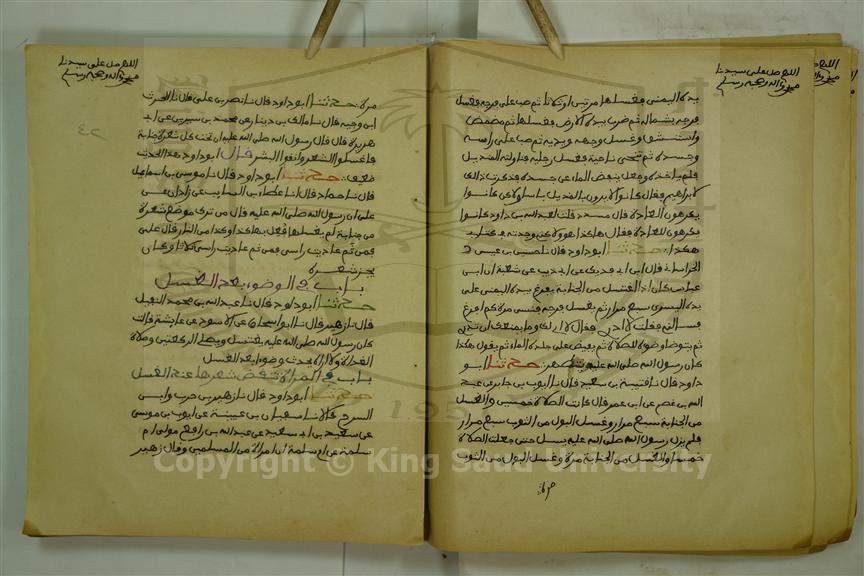 اللهم صل على سيدنا
محمد واله وصحبه وسلم
يده اليمنى فغسلها مرتين او ثلاثا ثم صب على فرجه فغسل
فرجه بشماله ثم ضرب بيده الارض فغسلها ثم مضمض
واستنشق وغسل وجهه ويديه ثم صب على راسه
وجسده ثم تنحى ناحية فغسل رجليه فناولته المنديل
فلم ياخذه وجعل ينفض الماء عن جسده فذكرت ذالك
لابراهيم فقال كانوا لا يرون بالمنديل باسا ولاكن كانوا
يكرهون العادة قال مسدد قلت لعبد الله بن داود كانوا
يكرهون للعادة فقال هاكذا هو ولاكن وجدته في كتابي
هكذا حدثنا ابو داود قال نا حسين بن عيسى
الخراساني قال ابن ابي فديك عن ابن ابي ذيب عن شعبة ان ابن
عباس كان اذا اغتسل من الجنابة يفرغ بيده اليمنى على
يده اليسرى سبع مرار ثم يغسل فرجه فنسي مرة كم افرغ
فسالني فقلت لا ادري فقال لا ام لك وما يمنعك ان تدري
ثم يتوضا وضوءه للصلاة ثم يفيض على جلده الماء ثم يقول هكذا
كان رسول الله صلى الله عليه يتطهر حدثنا ابو
داود قال نا قتيبة بن سعيد قال نا ايوب بن جابر عن عبد
الله بن عصم عن ابن عمر قال كانت الصلاة خمسين والغسل
من الجنابة سبع مرار وغسل البول من الثوب سبع مرار
فلم يزل رسول الله صلى الله عليه يسل حتى جعلت الصلاة
خمسا والغسل من الجنابة مرة وغسل البول من الثوب
مرة
اللهم صل على سيدنا
محمد واله وصحبه وسلم
٤٢
مرة حدثنا ابو داود قال نا نصر بن علي قال نا الحرث
ابن وجيه قال نا مالك بن دينار عن محمد بن سيرين عن ابي
هريرة قال قال رسول الله صلى الله عليه ان تحت كل شعرة جنابة
فاغسلوا الشعر وانقوا البشر قال ابو داود هذا الحديث
ضعيف حدثنا ابو داود قال نا موسى بن اسماعيل
قال نا حماد قال انا عطاء بن السايب عن زاذان عن
علي ان رسول الله صلى الله عليه قال من ترك موضع شعرة
من جنابة لم يغسلها فعل بها كذا وكذا من النار قال علي
فمن ثم عاديت راسي فمن ثم عاديت راسي ثلاثا وكان
يجز شعره
باب في الوضوء بعد الغسل
حدثنا ابو داود قال نا عبد الله بن محمد النفيلي
قال نا زهير قال نا ابو اسحاق عن الاسود عن عايشة قالت
كان رسول الله صلى الله عليه يغتسل ويصلي الركعتين وصلاة
الغداة ولا اراه يحدث وضوءا بعد الغسل
باب في المراة تنقض شعرها عند الغسل
حدثنا ابو داود قال نا زهير بن حرب وابن
السرح قالا نا سفيان بن عيينة عن ايوب بن موسى
عن سعيد بن ابي سعيد عن عبد الله بن رافع مولى ام
سلمة عن ام سلمة ان امراة من المسلمين وقال زهير
Copyright © King Saud University